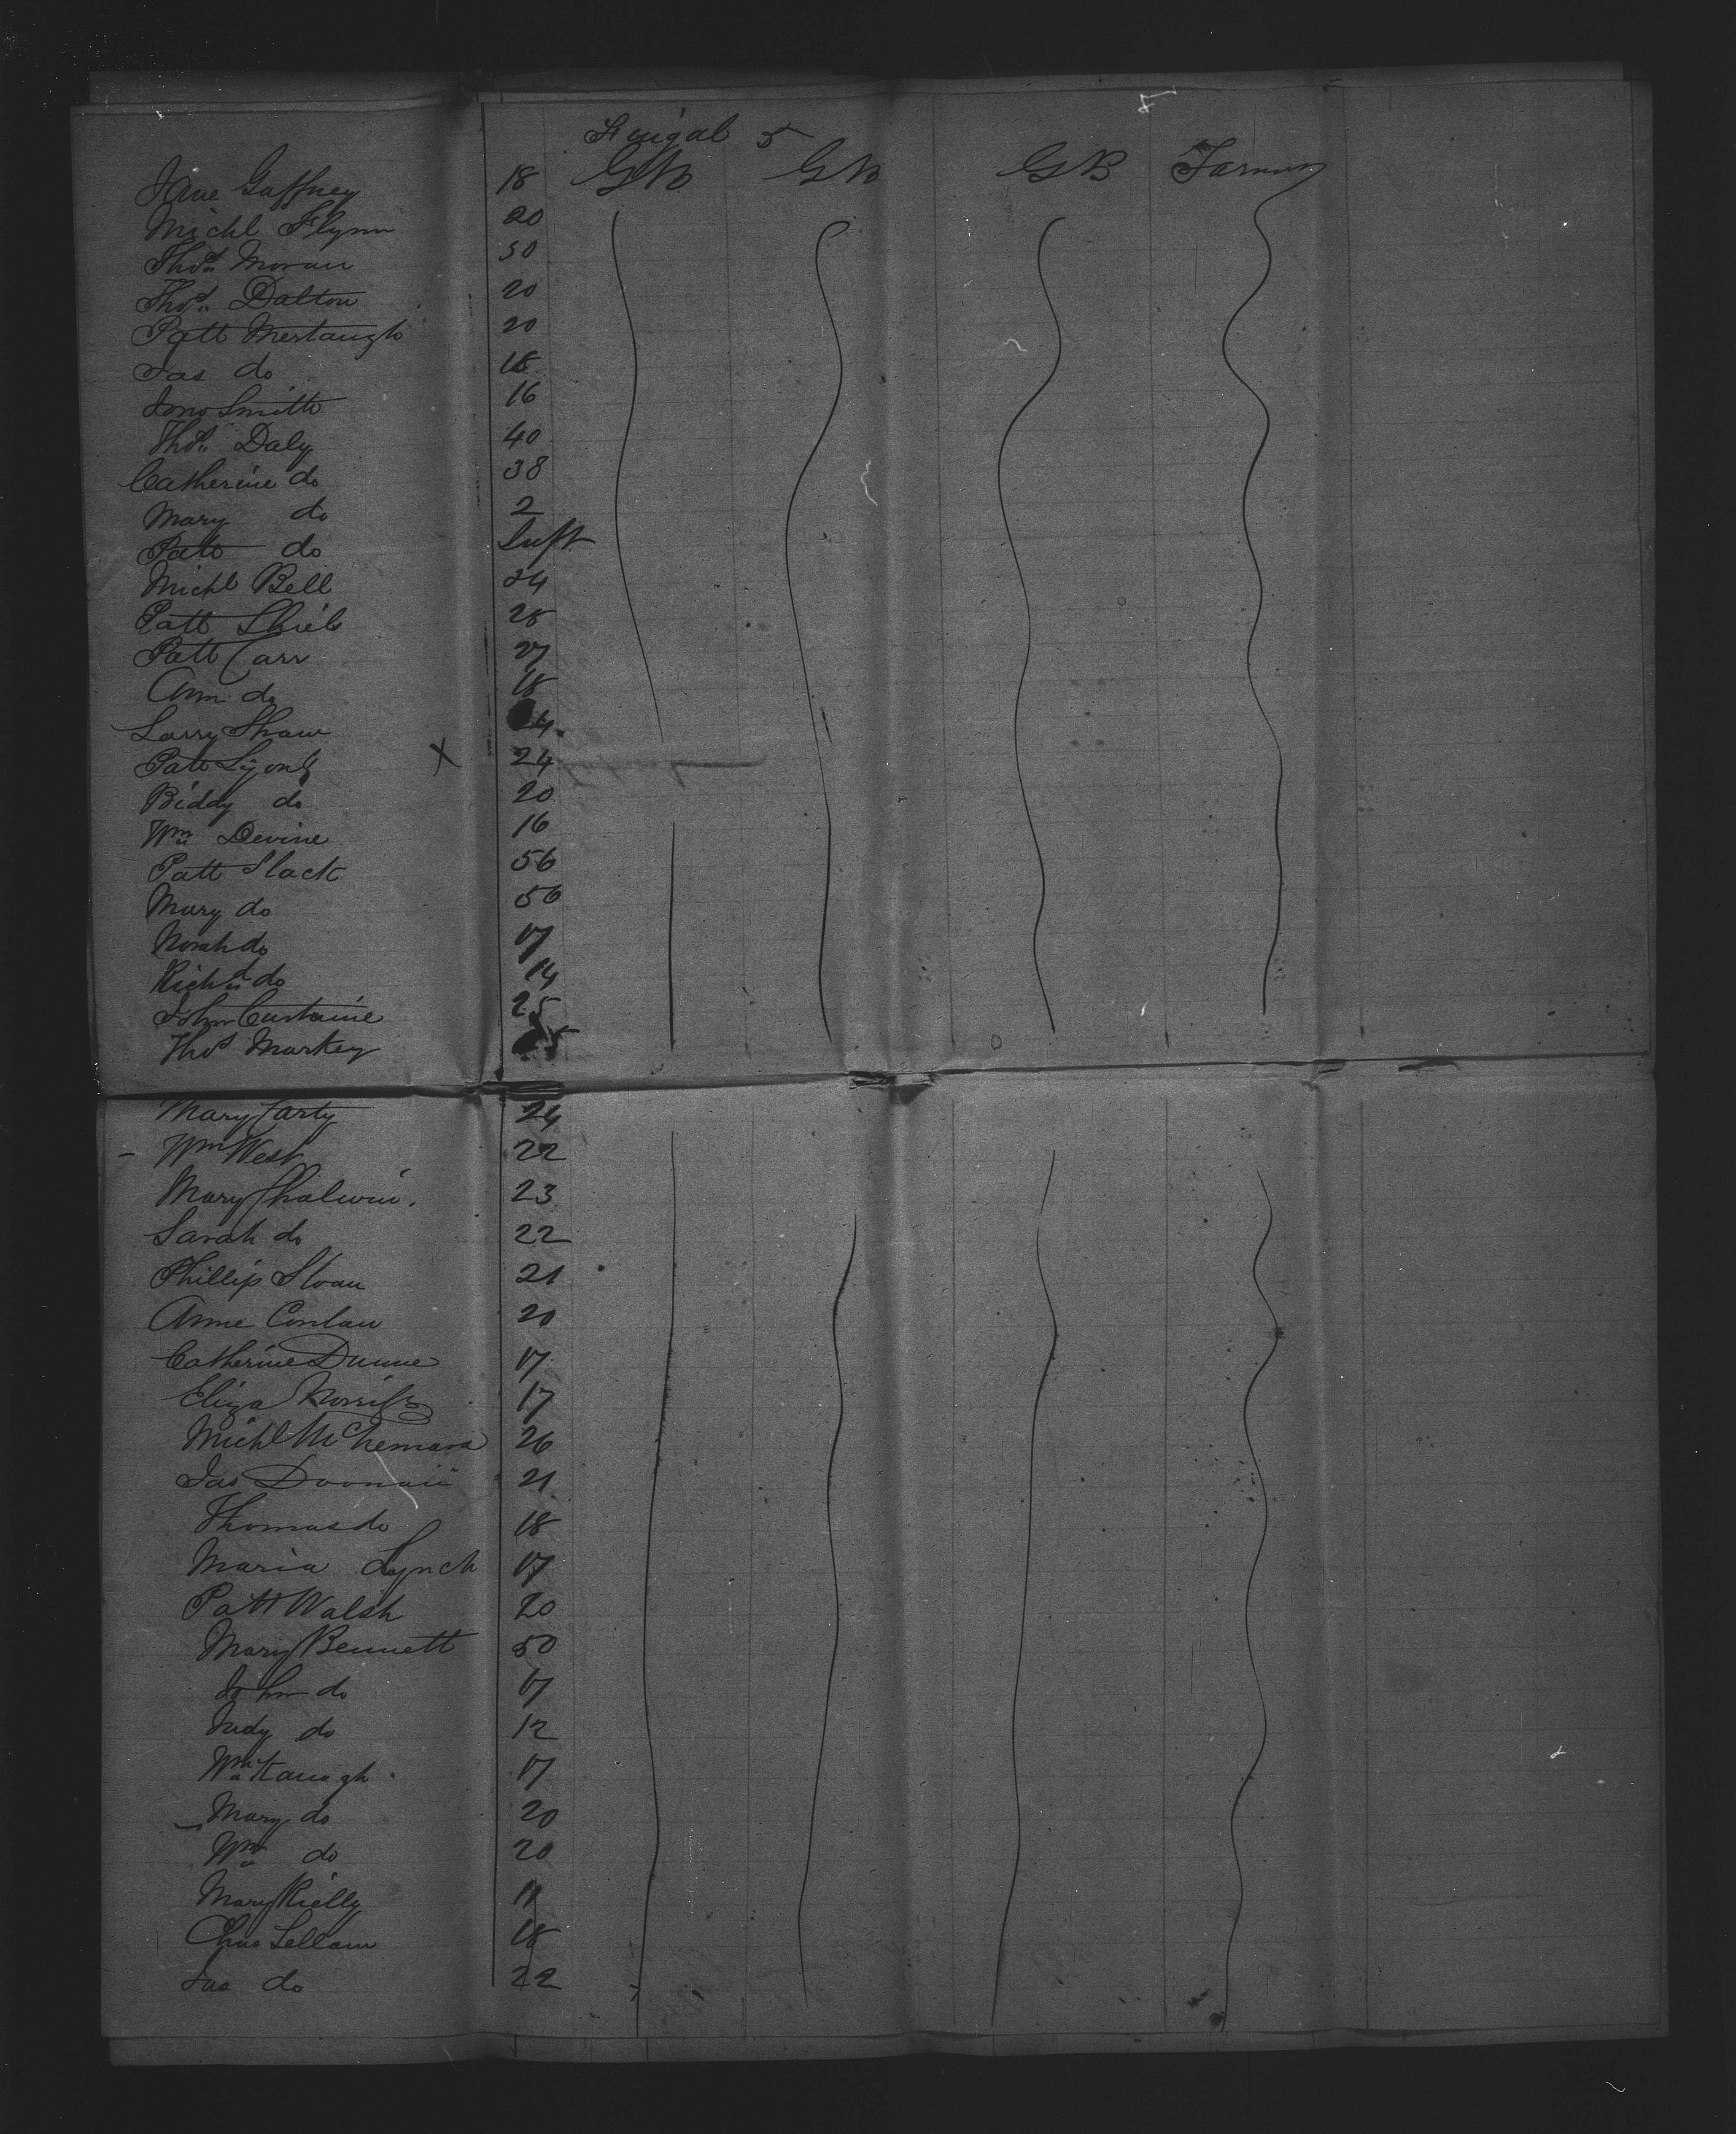 Fingal 5
Jane Gaffney 18 GB GB GB Farmer
Michl Flynn 20
Thos Moran 30
Thos Dalton 20
Patt Mertaugh 20
Jas do 18
Jno Smith 16
Thos Daly 40
Catherine do 38
Mary do 2
Patt do Inft
Michl Bell 24
Patt Shiels 28
Patt Carr 27
Ann do 18
Larry Shaw 24
Patt Lyons X 24
Biddy do 20
Wm Devine 16
Patt Slack 56
Mary do 56
Norah do 17
Richd do 14
John Curtaine 25
Thos Markey 25
Mary Carty 24
- Wm West 22
Mary 23
Sarah do 22
Phillip Sloan 21
Anne Conlan 20
Catherine Dunne 17
Eliza Norriss 17
Michl McNemara 26
Jas Doonan 21
Thomas do 18
Maria Lynch 17
Patt Walsh 20
Mary Bennett 50
John do 17
Judy do 12
Wm Kanogh 17
Mary do 20
Wm do 20
Mary Rielly 11
Chas Lellam 18
Jas do 22